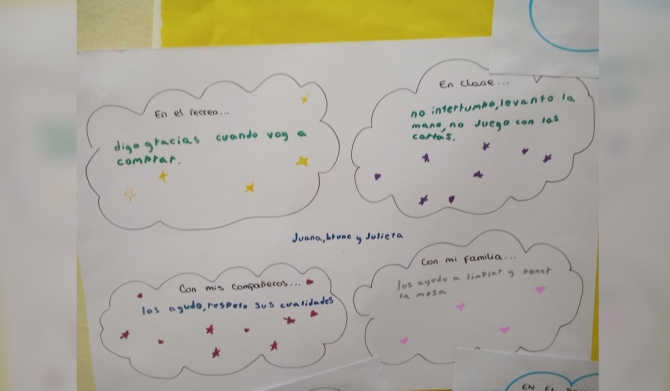 En el recreo...
digo gracias cuando voy a
comprar.
En clase...
no interrumpo, levanto la
mano, no Juego con las
cartas.
Juana, bruno y Julieta
Con mis compañeros...
los ayudo, respeto sus cualidades
Con mi familia...
los ayudo a limpiar y poner
la mesa
EN EL